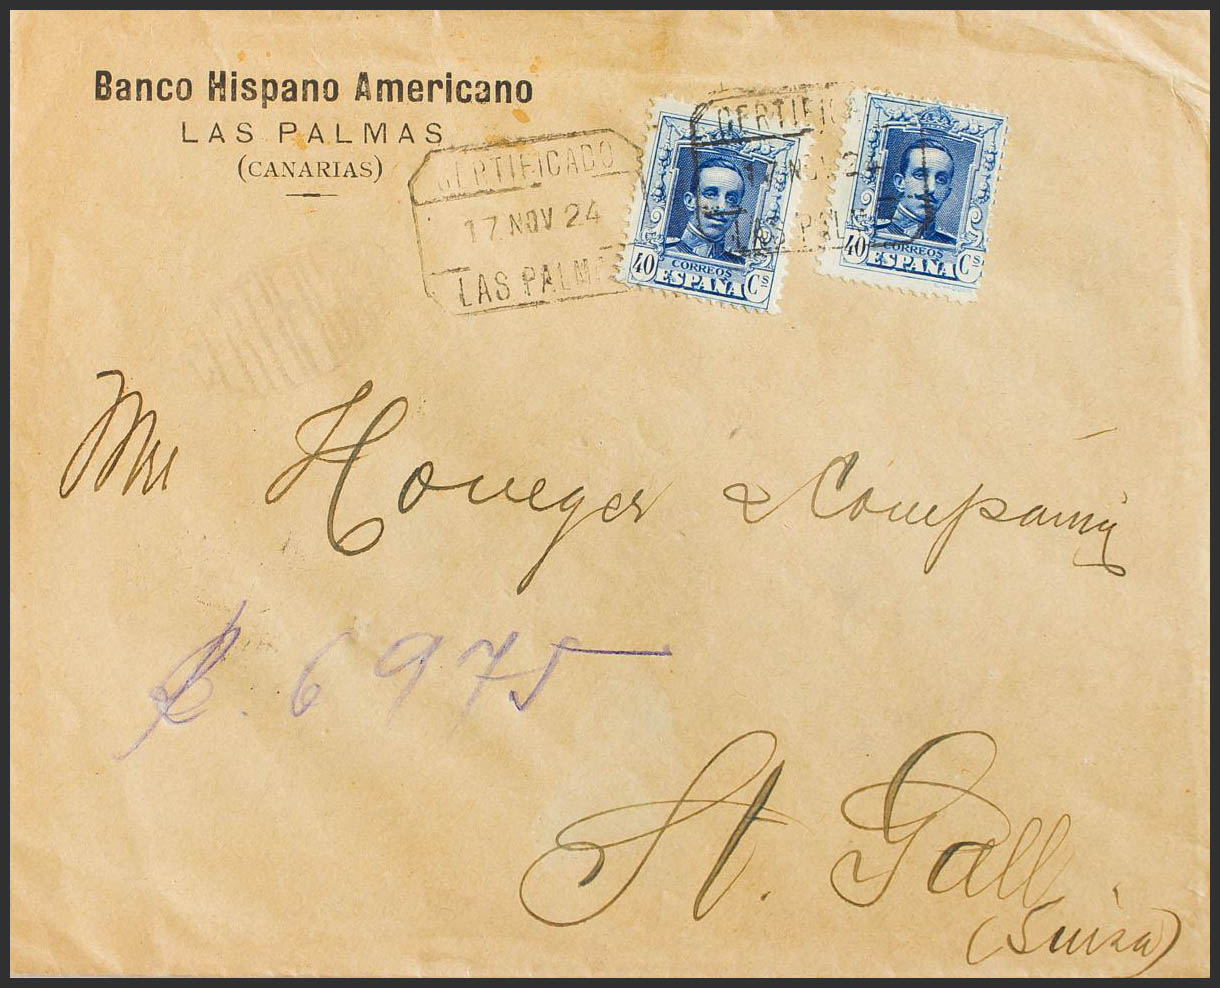 Banco Hispano Americano
LAS PALMAS
(CANARIAS)
CERTIFICADO
17 NOV 24
LAS PALMAS
CERTIFICADO
17 NOV 24
LAS PALMAS
40 CORREOS ESPAÑA Cs
40 CORREOS ESPAÑA Cs
Honeger & Company
R. 6975
St. Gall.
(Suiza)